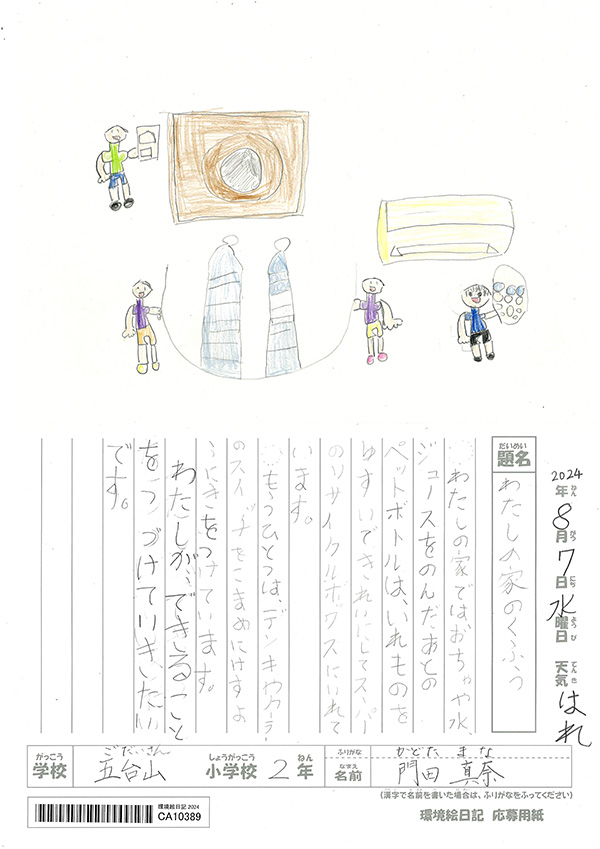 だいめい
題名
わたしの家のくふう
2024年ねん8月がつ7日にち水曜日ようび 天気てんき はれ
わたしの家では、おちゃや水、
ジュースをのんだあとの
ペットボトルは、いれものを
ゆすいできれいにしてスーパー
のリサイクルボックスにいれて
います。
もうひとつは、デンキやクーラー
のスイッチをこまめにけすよ
うにきをつけています。
わたしが、できること
をつづけていきたい
です。
がっこう
学校
ごだいさん
五台山
しょうがっこう
小学校
2
ねん
年
ふりがな
かどた まな
なまえ
名前
門田 真奈
(漢字で名前を書いた場合は、ふりがなをふってください)
環境絵日記 2024
CA10389
環境絵日記 応募用紙